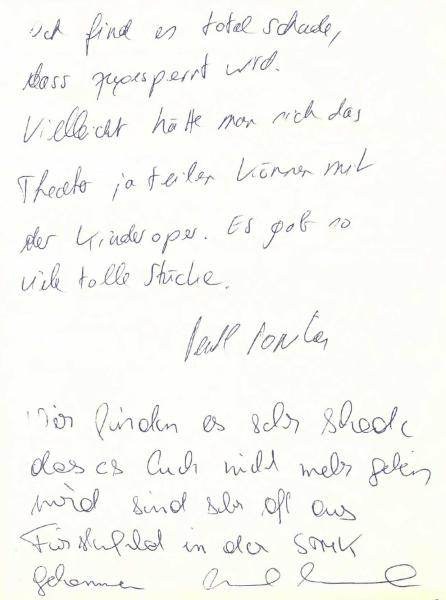 Ich find es total schade,
dass zugesperrt wird.
Vielleicht hätte man sich das
Theater ja teilen können mit
der Kinderoper. Es gab so
viele tolle Stücke.
Wir finden es sehr Shade
das es Euch nicht mehr geben
wird sind sehr oft aus
Fürstenfeld in der STMK
gekommen